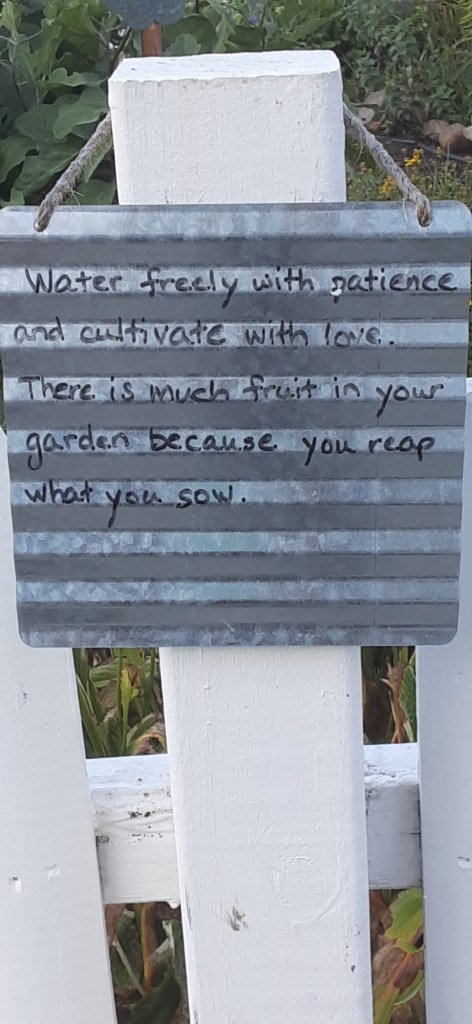 Water freely with patience
and cultivate with love.
There is much fruit in your
garden because you reap
what you sow.